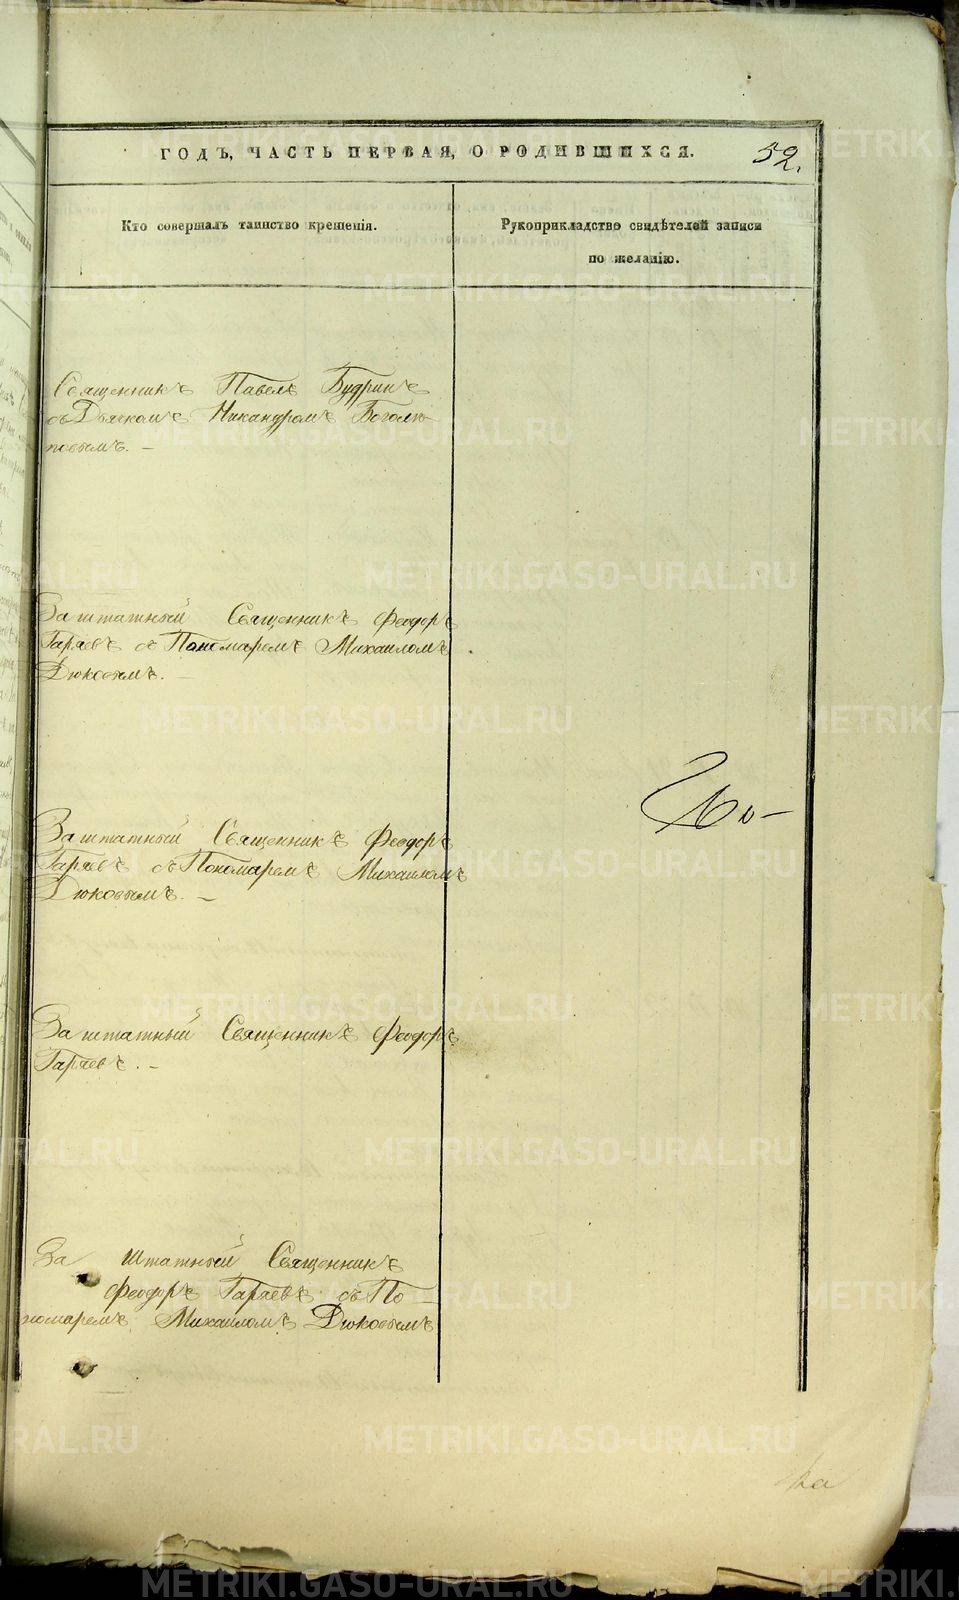 ГОДЪ, ЧАСТЬ ПЕРВАЯ, О РОДИВШИХСЯ.
52.
Кто совершалъ таинство крещенія.
Рукоприкладство свидѣтелей записи
по желанію.
Священникъ Павелъ Будринъ
съ Дьячкомъ Никандромъ Боголю-
повымъ. –
Заштатный Священникъ Феодоръ
Гаряевъ съ Пономаремъ Михаиломъ
Дюковымъ. –
Заштатный Священникъ Феодоръ
Гаряевъ съ Пономаремъ Михаиломъ
Дюковымъ. –
Заштатный Священникъ Феодоръ
Гаряевъ. –
За штатный Священникъ
Феодоръ Гаряевъ съ По-
номаремъ Михаиломъ Дюковымъ
METRIKI.GASO-URAL.RU